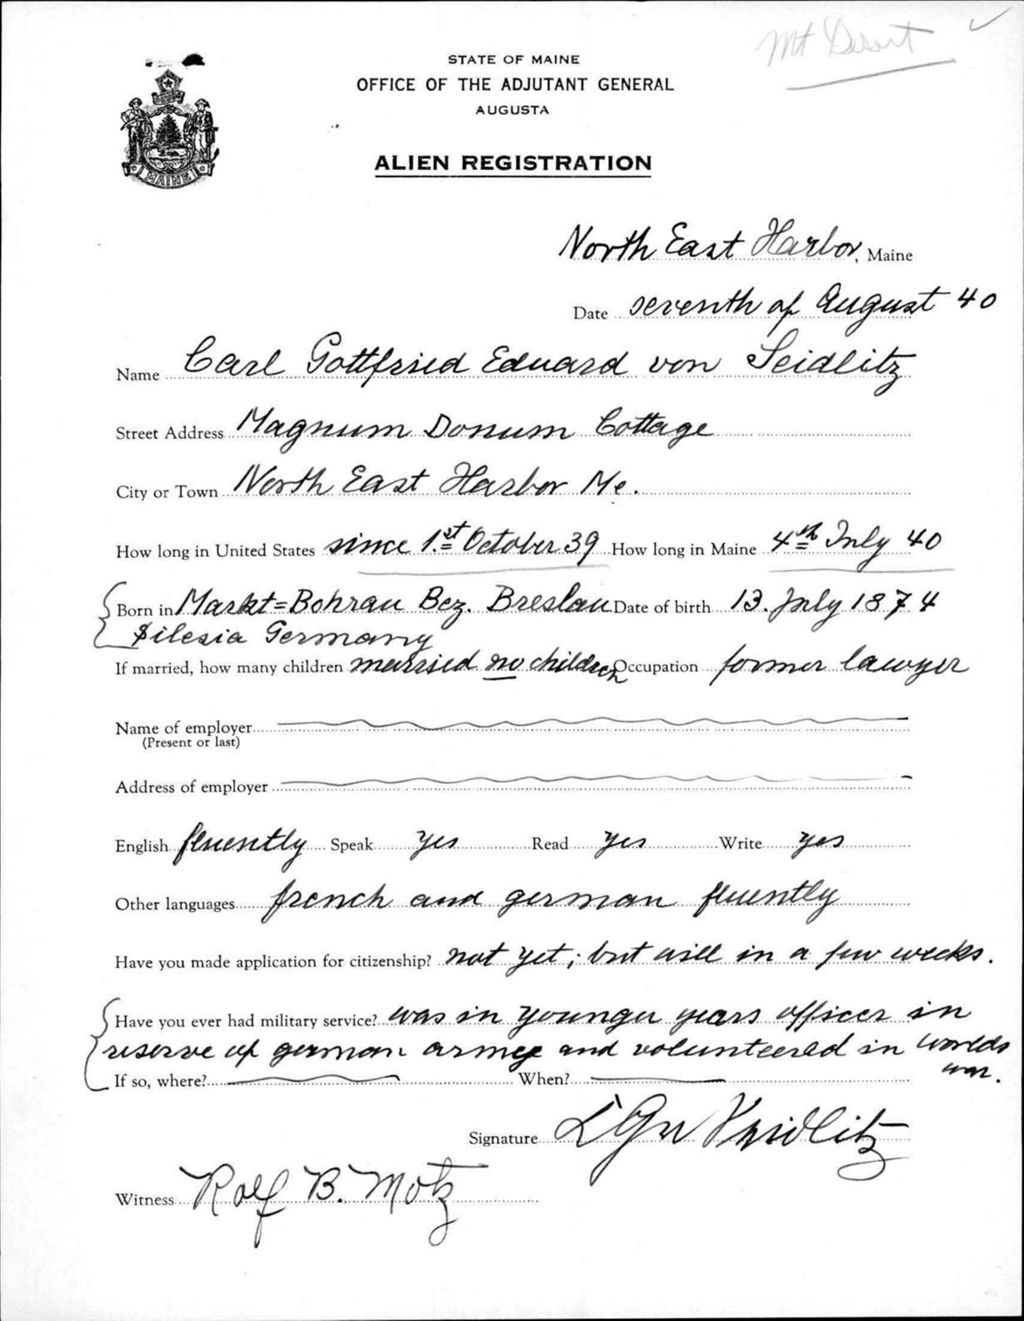 Mt Desert
STATE OF MAINE
OFFICE OF THE ADJUTANT GENERAL
AUGUSTA
ALIEN REGISTRATION
MAINE
North East Harbor, Maine
Date seventh of August 40
Name Carl Gottfried Eduard von Seidlitz
Street Address Magnum Donum Cottage
City or Town North East Harbor Me.
How long in United States since 1.st October 39 How long in Maine 4th July 40
Born in Markt=Bohrau Bez. Breslau Date of birth 13. July 1874
Silesia Germany
If married, how many children married no children Occupation former lawyer
Name of employer
(Present or last)
Address of employer
English fluently Speak yes Read yes Write yes
Other languages french and german fluently
Have you made application for citizenship? not yet; but will in a few weeks.
Have you ever had military service? was in younger years officer in
reserve of german army and volunteered in worlds
war.
If so, where? When?
Signature Seidlitz
Witness Rolf B. Motz